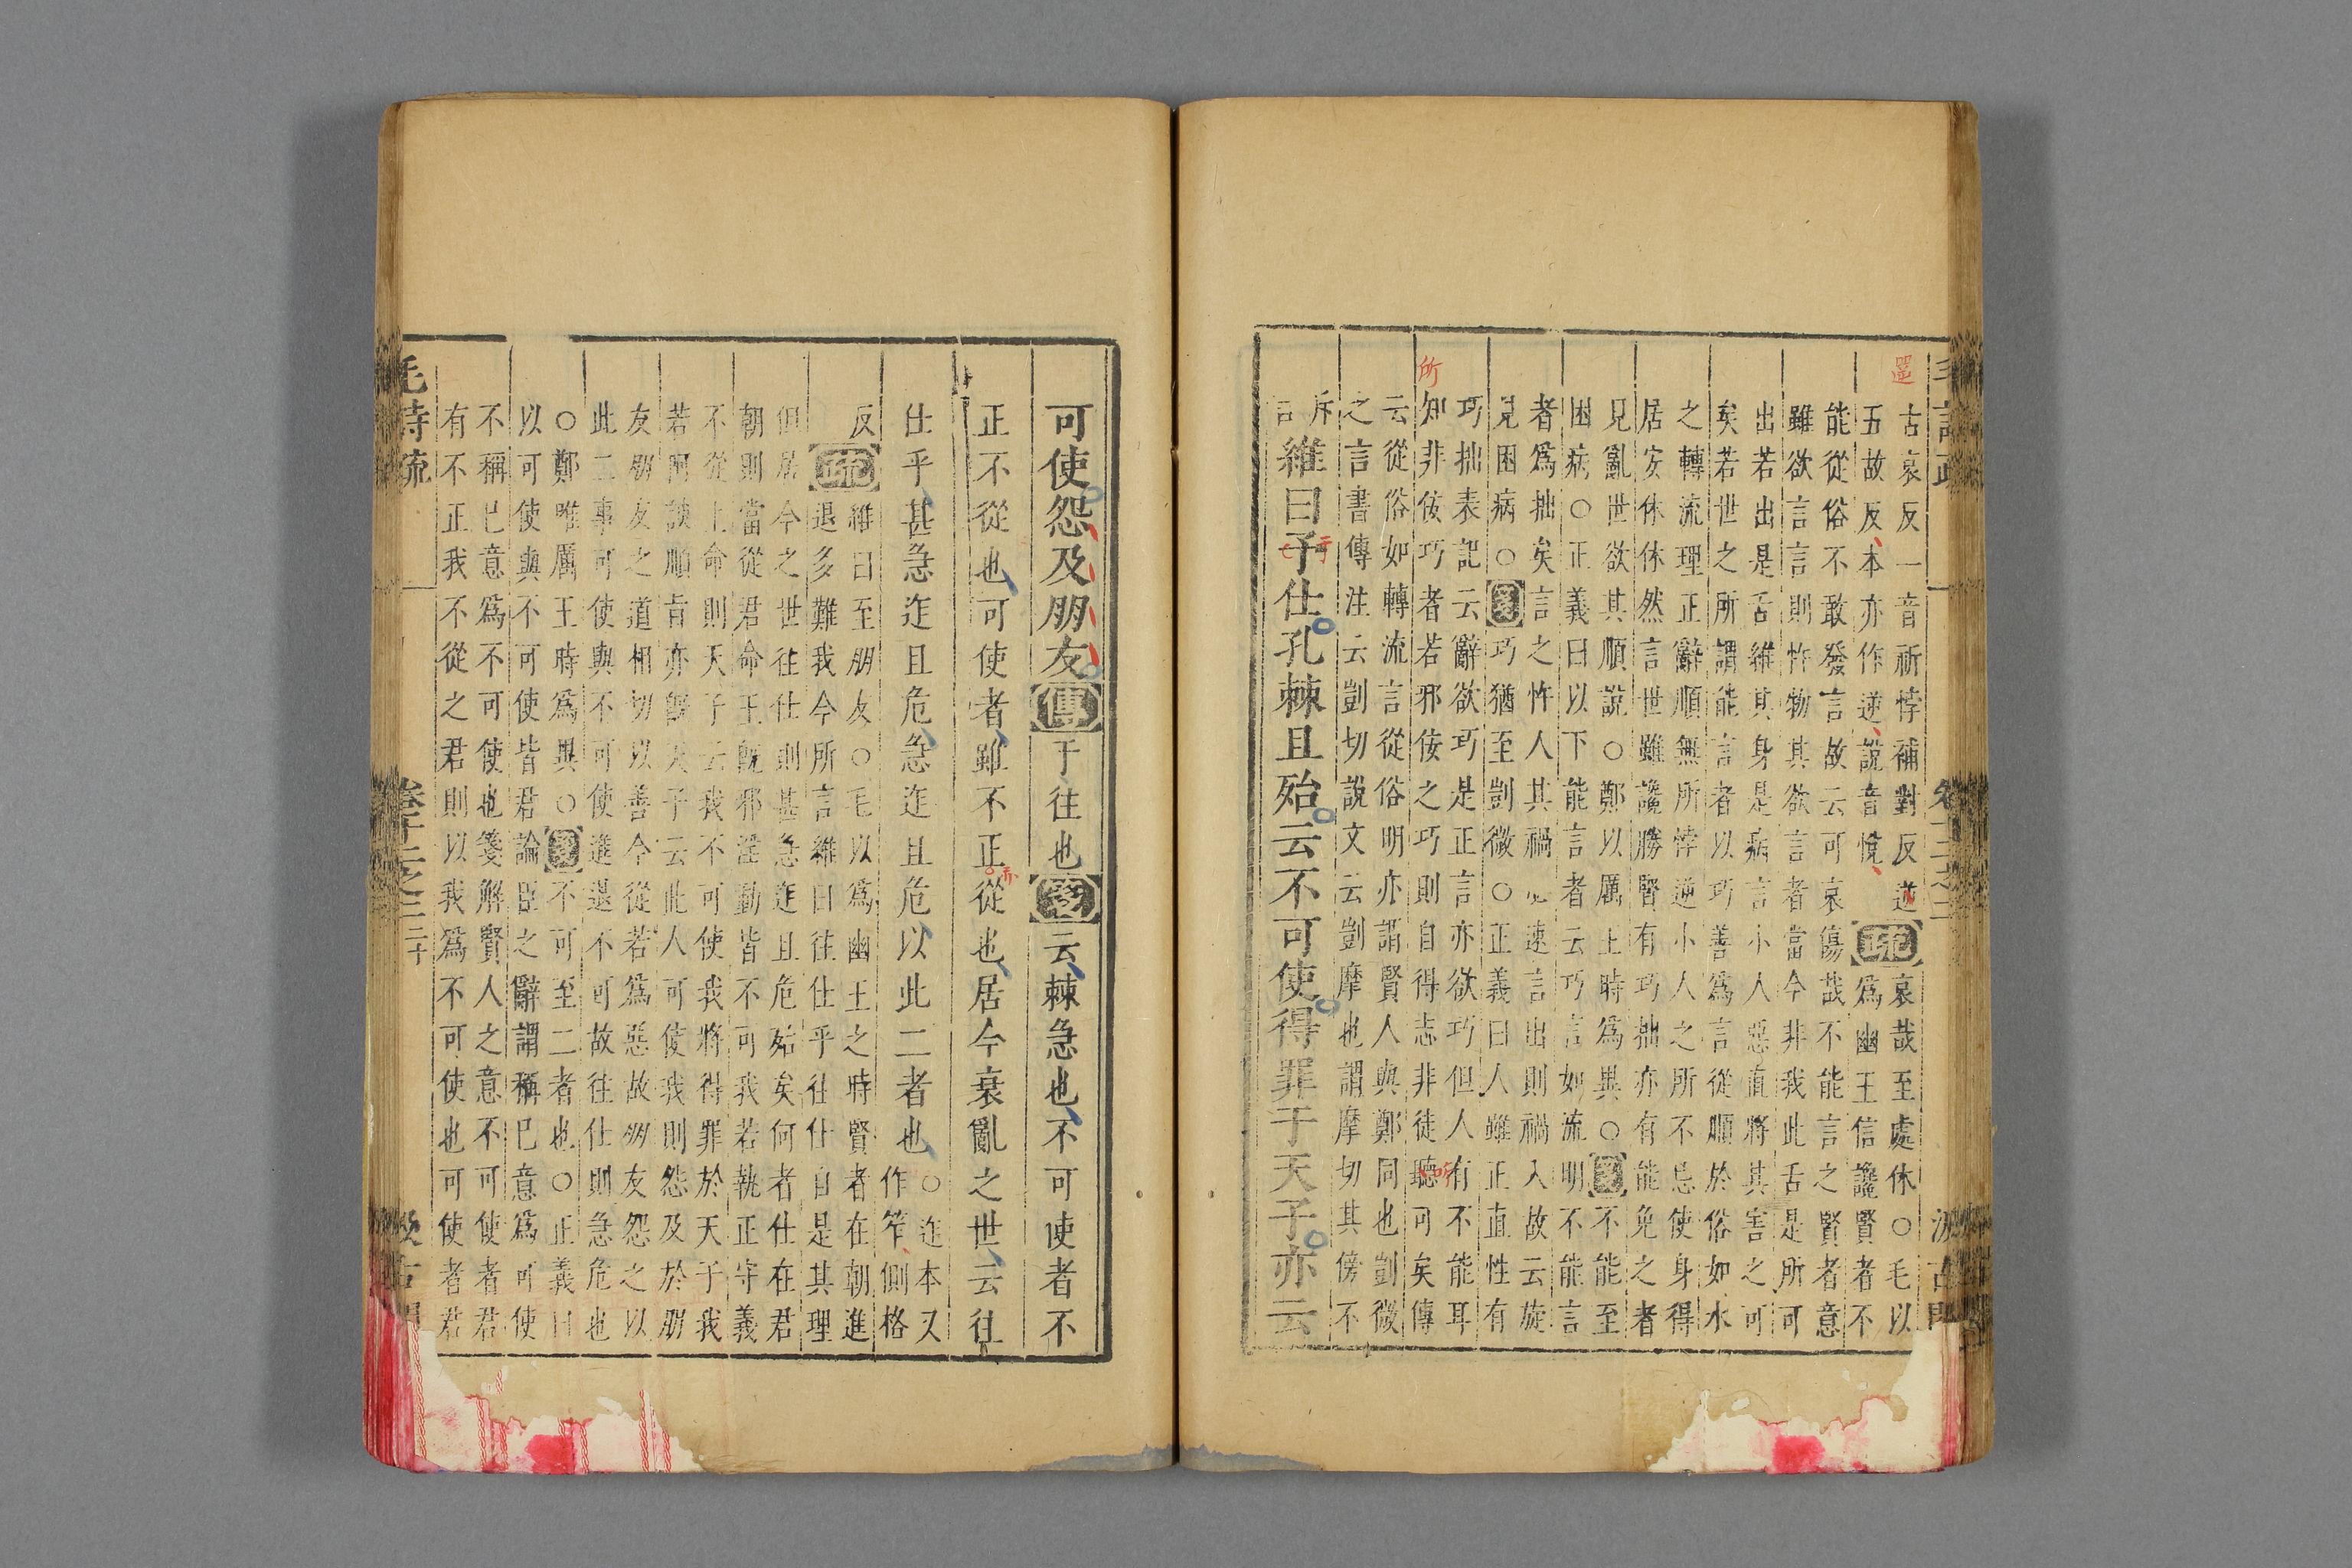 古哀反一音祈悖補對反逆
五故反本亦作逆說音悅
疏
哀哉至處休○毛以
爲幽王信讒賢者不
能從俗不敢發言故云可哀傷哉不能言之賢者意
雖欲言言則忤物其欲言者當今非我此舌是所可
出若出是舌維其身是病言小人惡直將其害之可
矣若世之所謂能言者以巧善爲言從順於俗如水
之轉流理正辭順無所悖逆小人之所不忌使身得
居安休休然言世雖讒勝賢有巧拙亦有能免之者
見亂世欲其順說○鄭以厲王時爲異○箋不能至
困病○正義曰以下能言者云巧言如流明不能言
者爲拙矣言之忤人其禍必速言出則禍入故云旋
見困病○箋巧猶至剴微○正義曰人雖正直性有
巧拙表記云辭欲巧是正言亦欲巧但人有不能耳
知非佞巧者若邪佞之巧則自得志非徒聽可矣傳
云從俗如轉流言從俗明亦謂賢人與鄭同也剴微
之言書傳注云剴切說文云剴摩也謂摩切其傍不
斥
言
維曰予仕孔棘且殆云不可使得罪于天子亦云
可使怨及朋友傳于往也箋云棘急也不可使者不
正不從也可使者雖不正從也居今衰亂之世云往
仕乎甚急迮且危急迮且危以此二者也○迮本又
作笮側格
反
疏
維曰至朋友○毛以爲幽王之時賢者在朝進
退多難我今所言維曰往仕乎往仕自是其理
但居今之世往仕則甚急迮且危殆矣何者仕在君
朝則當從君命王旣邪淫動皆不可我若執正守義
不從上命則天子云我不可使我將得罪於天子我
若阿諛順旨亦旣天子云此人可使我則怨及於朋
友朋友之道相切以善今從若爲惡故朋友怨之以
此二事可使與不可使進退不可故往仕則急危也
○鄭唯厲王時爲異○箋不可至二者也○正義曰
以可使與不可使皆君論臣之辭謂稱已意爲可使
不稱已意爲不可使也箋解賢人之意不可使者君
有不正我不從之君則以我爲不可使也可使者君
毛詩疏
卷十二之三
三十
汲古閣
所
亦